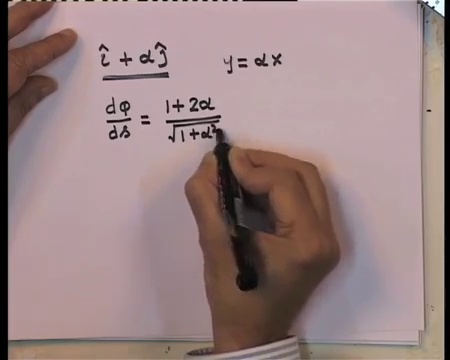 î + αĵ y = αx
dφ/ds = (1 + 2α)/√(1 + α²)